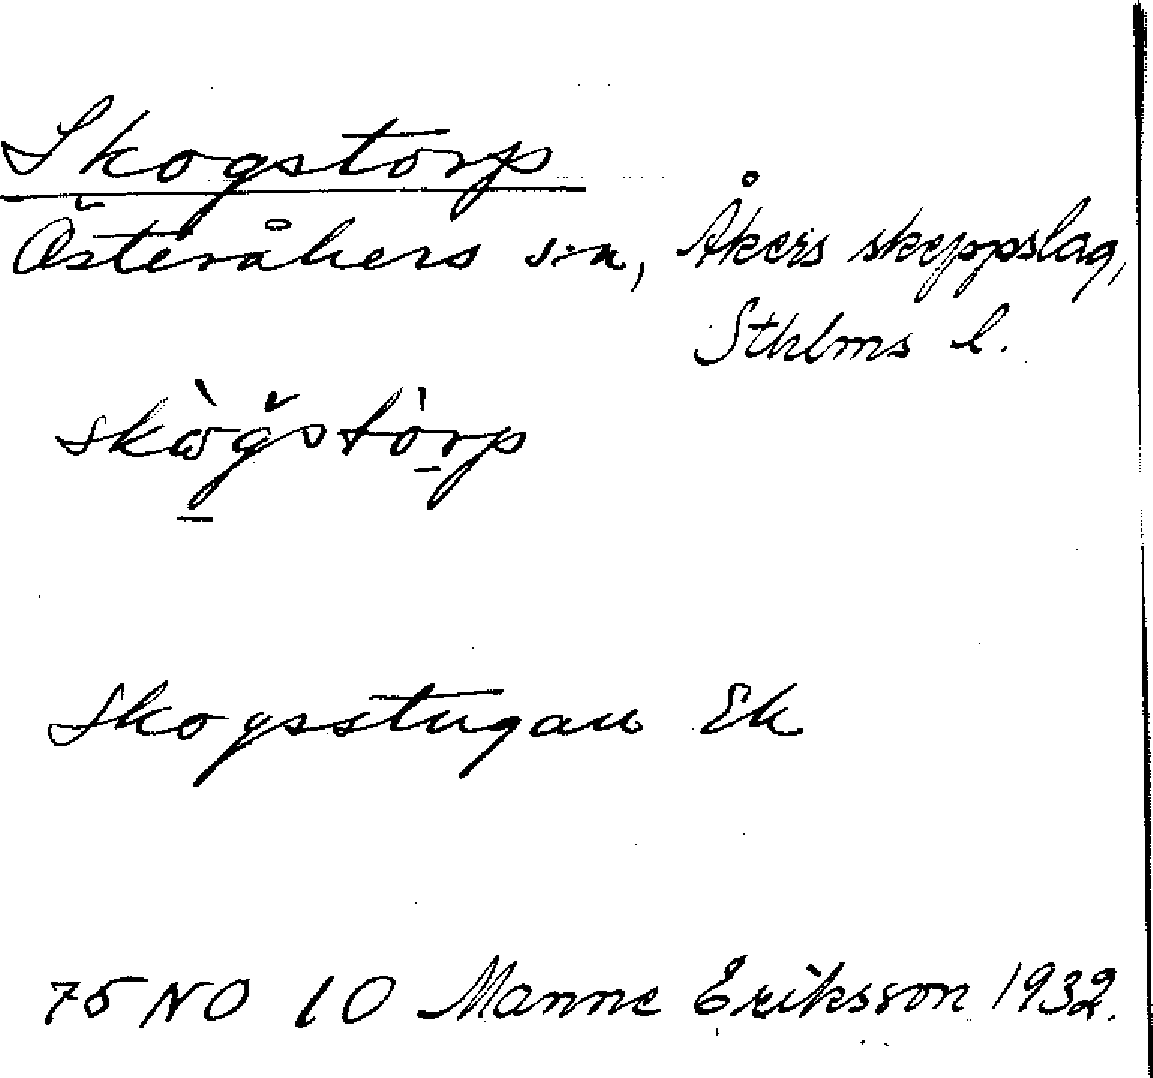 Skogstorp
Österåkers s:n, Åkers skeppslag,
Sthlms l.
skògstòrp
Skogsstugan Ek
75 NO 10 Manne Eriksson 1932.